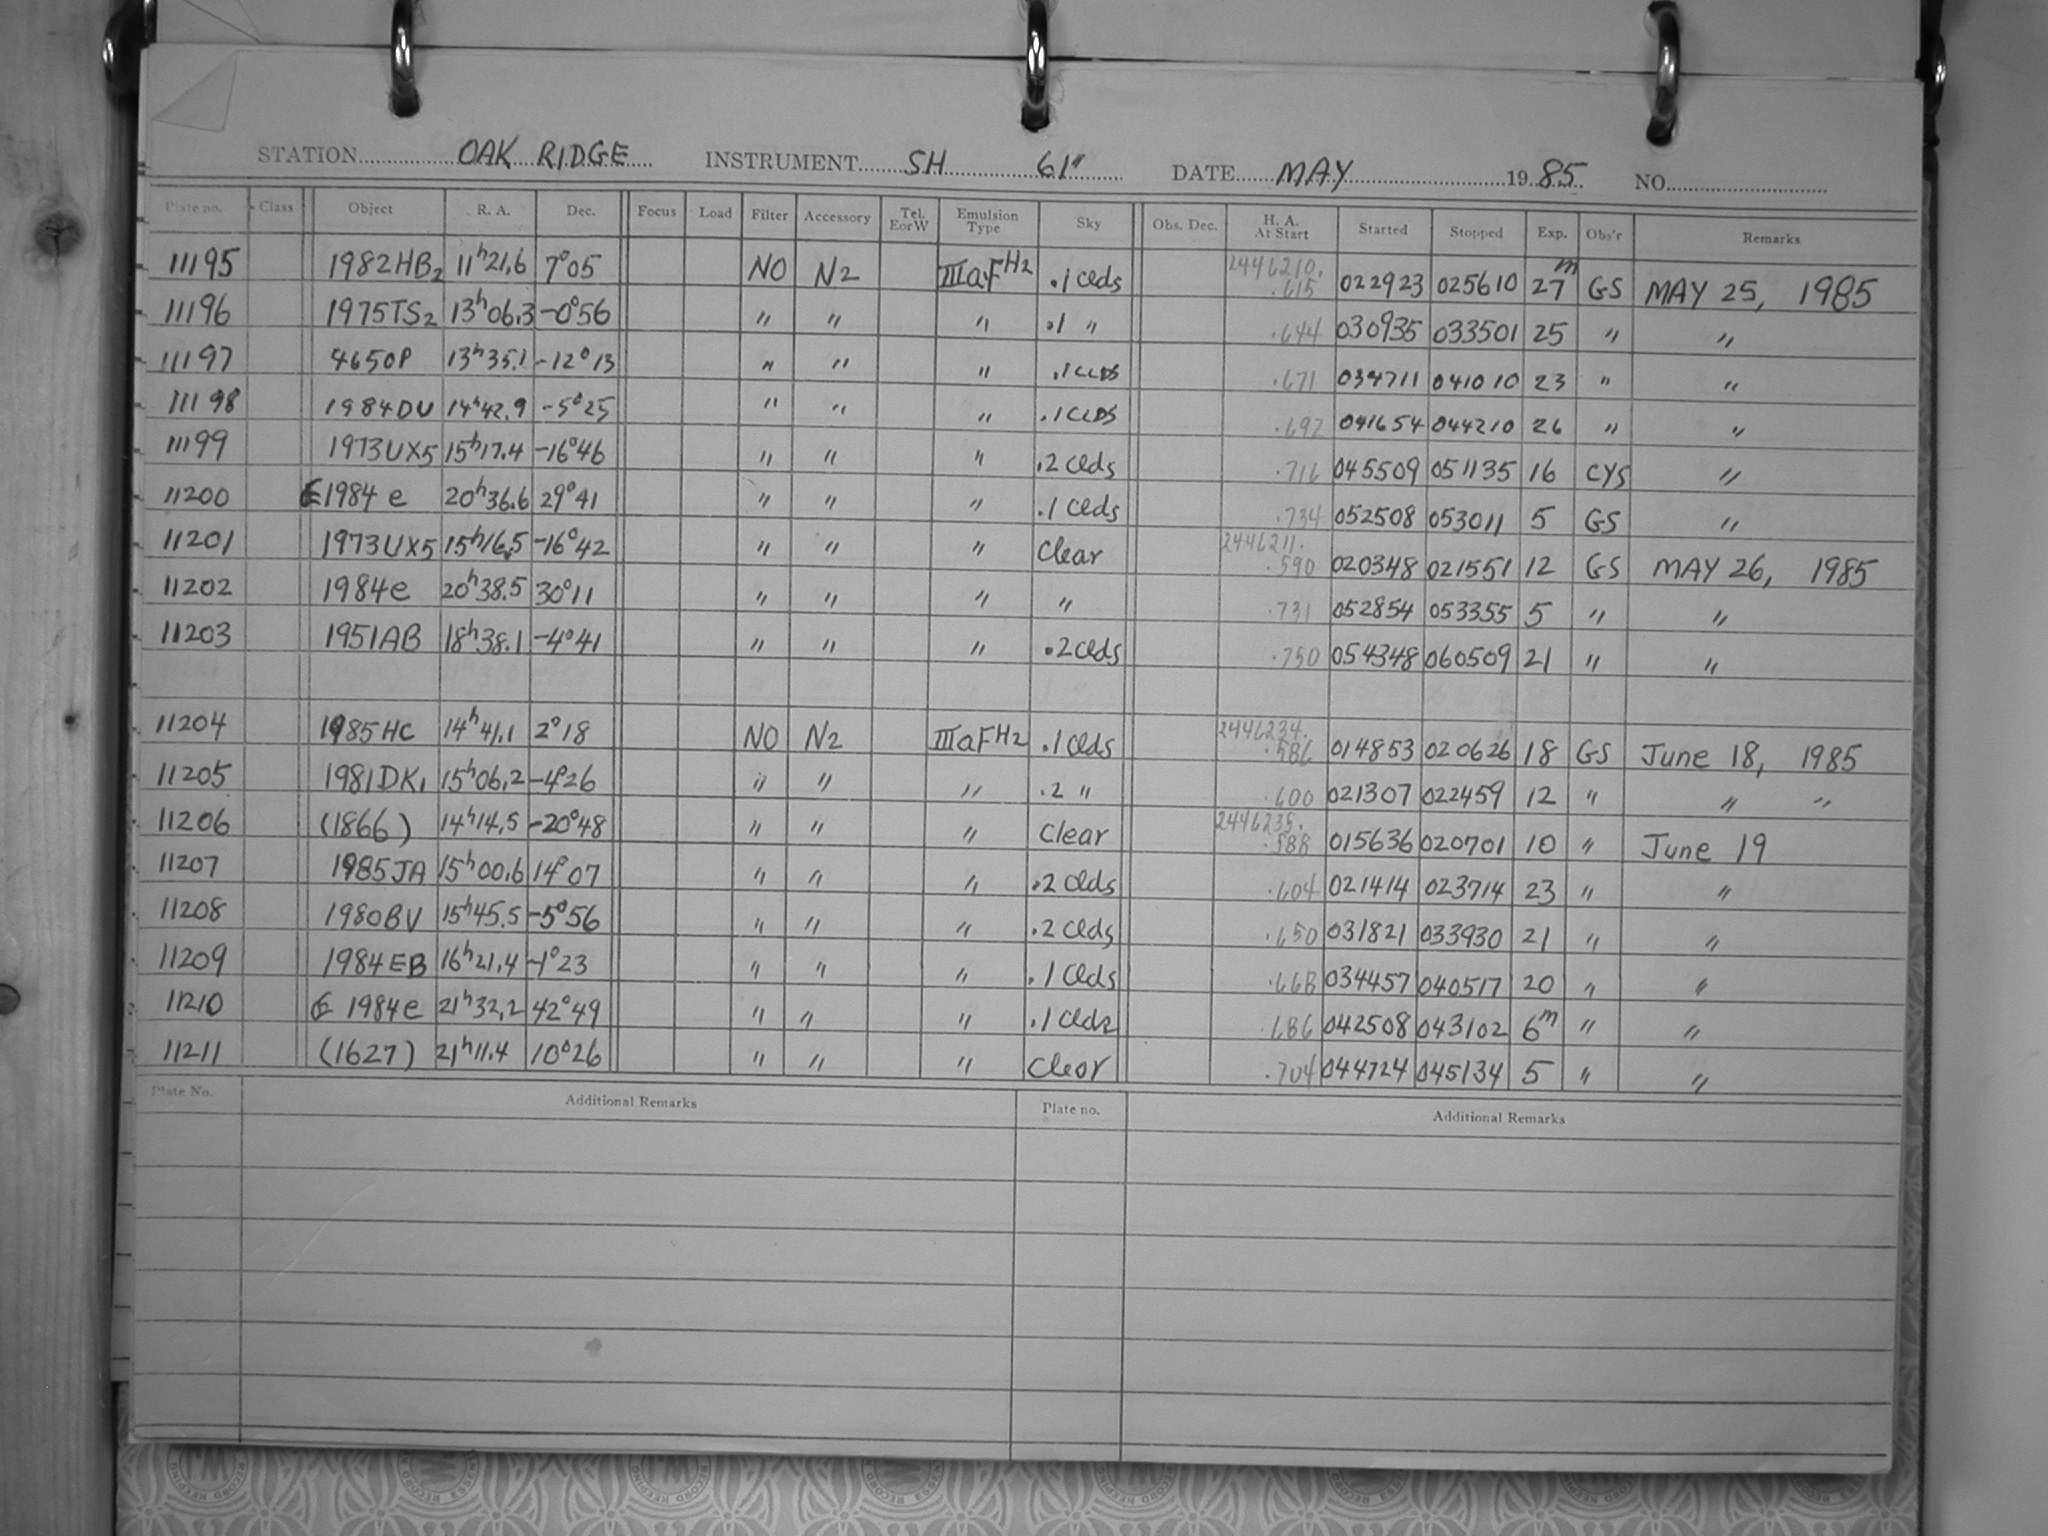 STATION OAK RIDGE INSTRUMENT SH 61" DATE MAY 1985 NO.
Plate no. Class Object R. A. Dec. Focus Load Filter Accessory Tel. E or W Emulsion Type Sky Obs. Dec. H. A. At Start Started Stopped Exp. Obs'r Remarks
11195 1982HB2 11h21.6 7°05 NO N2 IIIaF H2 .1 clds 2446210. .615 022923 025610 27m GS MAY 25, 1985
11196 1975TS2 13h06.3 -0°56 " " " .1 " .644 030935 033501 25 " "
11197 4650P 13h35.1 -12°13 " " " .1 CLDS .671 034711 041010 23 " "
11198 1984DU 14h42.9 -5°25 " " " .1 CLDS .692 041654 044210 26 " "
11199 1973UX5 15h17.4 -16°46 " " " .2 clds .716 045509 051135 16 CYS "
11200 1984 e 20h36.6 29°41 " " " .1 clds .734 052508 053011 5 GS "
11201 1973UX5 15h16.5 -16°42 " " " Clear 2446211. .590 020348 021551 12 GS MAY 26, 1985
11202 1984e 20h38.5 30°11 " " " " .731 052854 053355 5 " "
11203 1951AB 18h38.1 -4°41 " " " .2 clds .750 054348 060509 21 " "
11204 1985HC 14h41.1 2°18 NO N2 IIIaF H2 .1 clds 2446234. .586 014853 020626 18 GS June 18, 1985
11205 1981DK1 15h06.2 -4°26 " " " .2 " .600 021307 022459 12 " " "
11206 (1866) 14h14.5 -20°48 " " " Clear 2446235. .588 015636 020701 10 " June 19
11207 1985JA 15h00.6 14°07 " " " .2 clds .604 021414 023714 23 " "
11208 1980BV 15h45.5 -5°56 " " " .2 clds .650 031821 033930 21 " "
11209 1984EB 16h21.4 -1°23 " " " .1 clds .668 034457 040517 20 " "
11210 1984e 21h32.2 42°49 " " " .1 clds .686 042508 043102 6m " "
11211 (1627) 21h11.4 10°26 " " " Clear .704 044724 045134 5 " "
Plate No. Additional Remarks Plate no. Additional Remarks